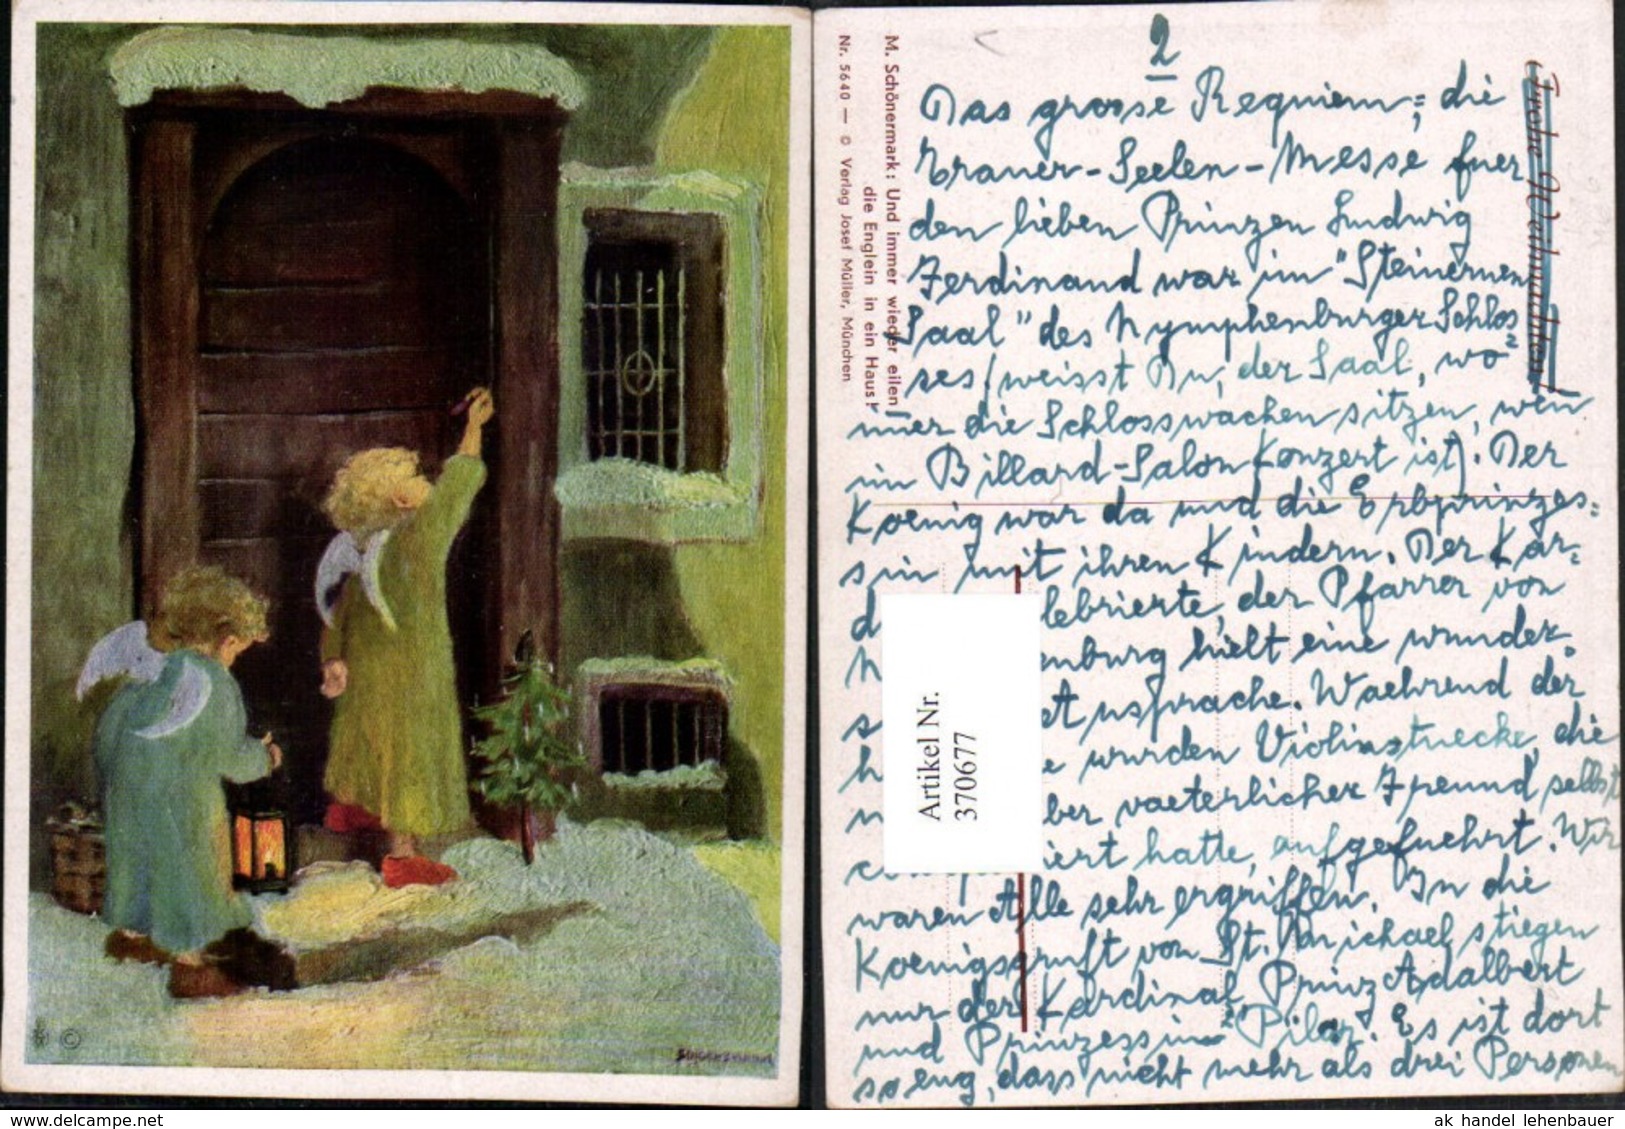 2
Das grosse Requiem, die
Trauer-Seelen-Messe fuer
den lieben Prinzen Ludwig
Ferdinand war im "Steinernen
Saal" des Nymphenburger Schlos=
ses (weisst Du, der Saal, wo
die Schlosswachen sitzen, wen
im Billard-Salon Konzert ist). Der
Koenig war da und die Erbprinzes=
sin mit ihren Kindern. Der Kar=
d lebrierte, der Pfarrer von
N enburg hielt eine wunder=
s Ansprache. Waehrend der
h e wurden Violinstuecke, die
ber vaeterlicher Freund selbst
iert hatte, aufgefuehrt. Wir
waren Alle sehr ergriffen. In die
Koenigsgruft von St. Michael stiegen
nur der Kardinal, Prinz Adalbert
und Prinzessin Pilar. Es ist dort
so eng, dass nicht mehr als drei Personen
Frohe Weihnachten!
M. Schönermark: Und immer wieder eilen
die Englein in ein Haus!
Nr. 5640 — © Verlag Josef Müller, München
Artikel Nr.
370677
©
ak handel lehenbauer